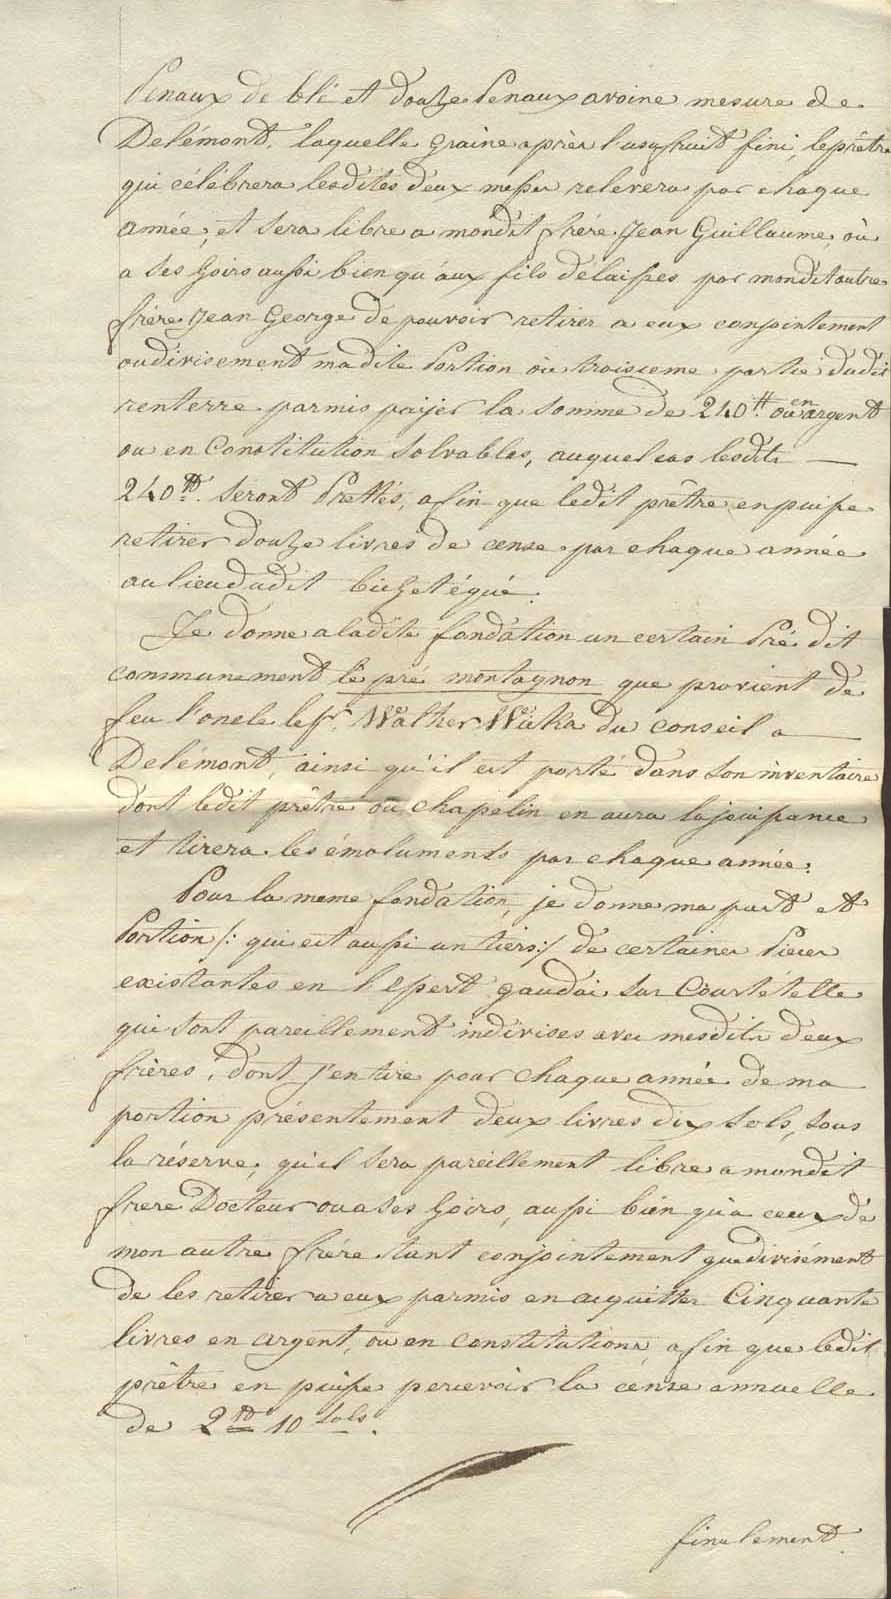 Penaux de blé et douze Penaux avoine mesure de
Delémont, laquelle graine après l'usufruit fini, le prêtre
qui célébrera lesdites deux messes relevera par chaque
année, et sera libre a mondit frére Jean Guillaume, où
a ses hoirs aussi bien qu'aux fils délaissés par mondit autre
frére Jean George de pouvoir retirer a eux conjointement
ou divisement madite Portion où troisieme partie dudit
renterre parmis paijer la somme de 240 ℔ en argent
ou en Constitution solvables, auquel cas lesdits —
240 ℔. seront Prettés, afin que ledit prêtre en puisse
retirer douze livres de cense par chaque année
au lieu dudit
Je donne a ladite fondation un certain Pré dit
communement le pré montagnon que provient de
feu l'oncle le Sr. Walther Wicka du conseil a —
Delémont, ainsi qu'il est porté dans son inventaire
dont ledit prêtre ou chapelin en aura la jouissance
et tirera les émoluments par chaque année.
Pour la meme fondation, je donne ma part et
Portion /: qui est aussi un tiers :/ de certaines Pieces
existantes en l'Essert gaudai sur Courtételle
qui sont pareillement indivises avec mesdits deux
fréres, dont j'en tire pour chaque année de ma
portion présentement deux livres dix sols, sous
la réserve, qu'il sera pareillement libre a mondit
frere Docteur ou a ses hoirs, aussi bien qu'a ceux de
mon autre frére tant conjointement que divisément
de les retirer a eux parmis en acquitter Cinquante
livres en argent, ou en constitutions, afin que ledit
prêtre en puisse percevoir la cense annuelle
de 2 ℔ 10 sols.
finalement